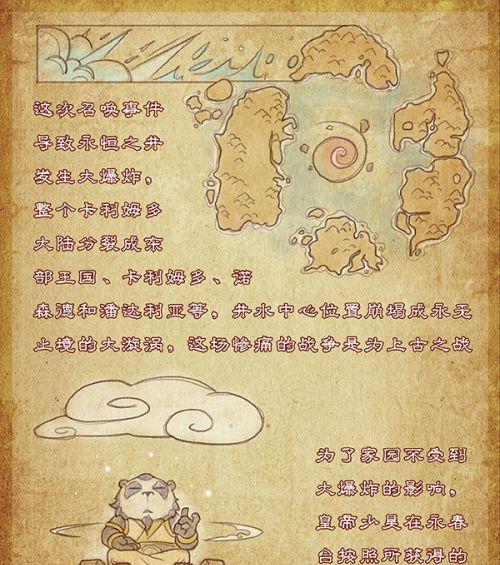 这次召唤事件
导致永恒之井
发生大爆炸，
整个卡利姆多
大陆分裂成东
部王国、卡利姆多、诺
森德和潘达利亚等，井水中心位置崩塌成永无
止境的大漩涡，这场惨痛的战争是为上古之战
为了家园不受到
大爆炸的影响，
皇帝少昊在永春
台按照所获得的